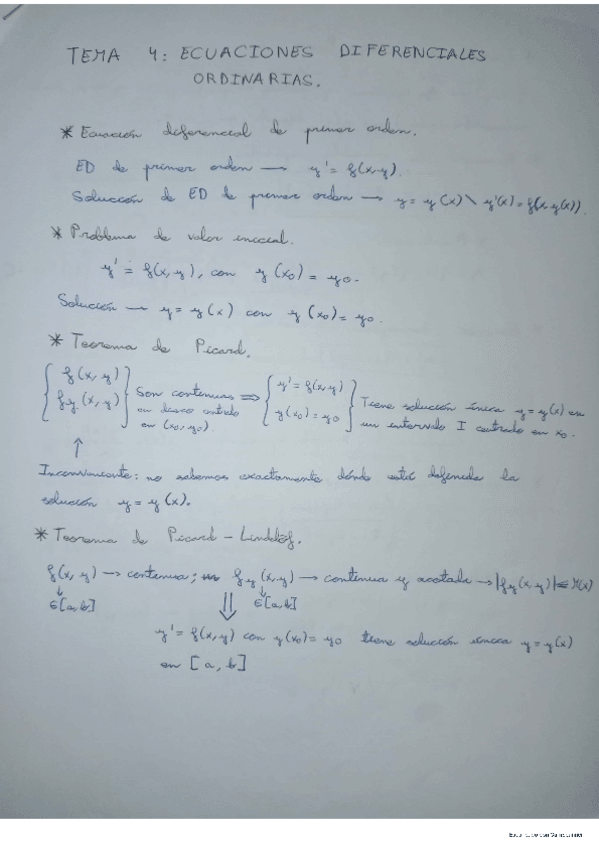 TEMA 4: ECUACIONES DIFERENCIALES
ORDINARIAS.
* Ecuación diferencial de primer orden.
ED de primer orden → y' = f(x,y).
Solución de ED de primer orden → y = y(x) \ y'(x) = f(x,y(x)).
* Problema de valor inicial.
y' = f(x,y), con y(x₀) = y₀.
Solución → y = y(x) con y(x₀) = y₀.
* Teorema de Picard.
{ f(x,y) fy(x,y) } Son continuas en disco centrado en (x₀,y₀). ⇒ { y' = f(x,y) y(x₀) = y₀ } Tiene solución única y = y(x) en un intervalo I centrado en x₀.
↑
Inconveniente: no sabemos exactamente dónde está definida la
solución y = y(x).
* Teorema de Picard - Lindelöf.
f(x,y) → continua; fy(x,y) → continua y acotada → |fy(x,y)| ≤ M(x)
↓ ↓
∈[a,b] ⇓ ∈[a,b]
y' = f(x,y) con y(x₀) = y₀ tiene solución única y = y(x)
en [a,b]